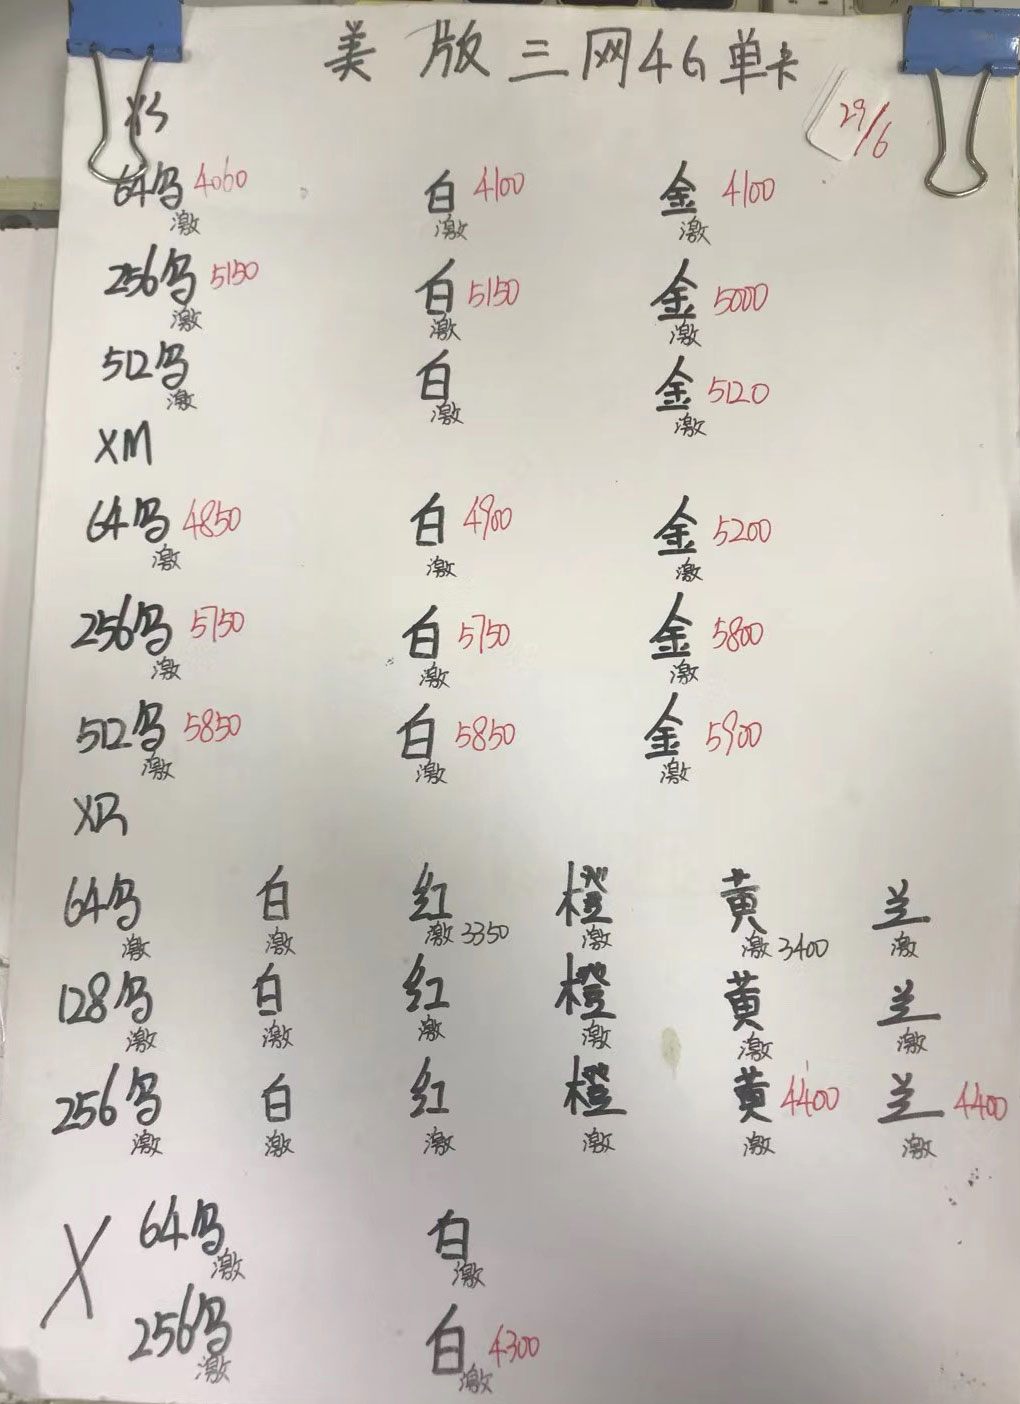 美版三网4G单卡
29/6
XS
64乌 4060 白 4100 金 4100
激 激 激
256乌 5150 白 5150 金 5000
激 激 激
512乌 白 金 5120
激 激 激
XM
64乌 4850 白 4900 金 5200
激 激 激
256乌 5750 白 5750 金 5800
激 激 激
512乌 5850 白 5850 金 5900
激 激 激
XR
64乌 白 红 橙 黄 兰
激 激 激 3350 激 激 3400 激
128乌 白 红 橙 黄 兰
激 激 激 激 激 激
256乌 白 红 橙 黄 4400 兰 4400
激 激 激 激 激 激
X 64乌 白
激 激
256乌 白 4300
激 激